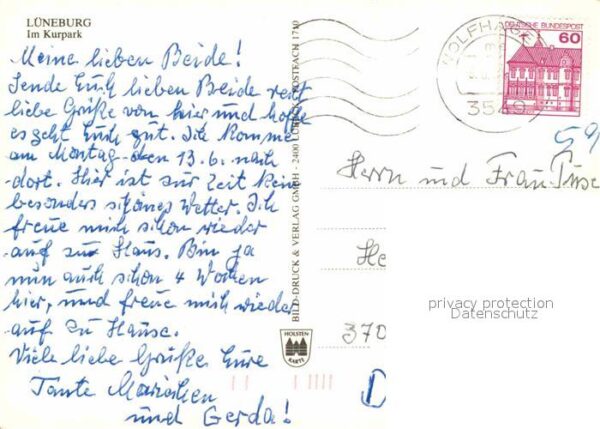 LÜNEBURG
Im Kurpark
Meine lieben Beide!
Sende Euch lieben Beide recht
liebe Grüße von hier und hoffe
es geht Euch gut. Ich komme
am Montag den 13.6. nach
dort. Hier ist zur Zeit kein
besonders schönes Wetter. Ich
freue mich schon wieder
auf zu Haus. Bin ja
nun auch schon 4 Wochen
hier, und freue mich wieder
auf zu Hause.
Viele liebe Grüße Eure
Tante Mariechen
und Gerda!
BILD-DRUCK & VERLAG GMBH · 2400 LÜBECK POSTFACH 1740
HOLSTEN
KARTE
WOLFHAGEN
3549
DEUTSCHE BUNDESPOST
60
59
Herrn und Frau
He
370
D
privacy protection
Datenschutz